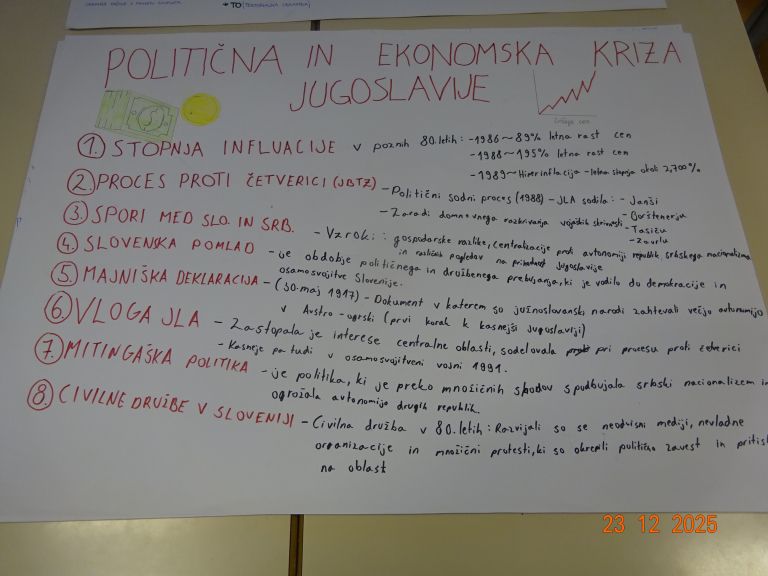 → TO
POLITIČNA IN EKONOMSKA KRIZA
JUGOSLAVIJE
1. STOPNJA INFLUACIJE v poznih 80. letih: - 1986 ~ 89% letna rast cen
- 1988 ~ 195% letna rast cen
- 1989 ~ Hiperinflacija - letna stopnja okoli 2,700%
2. PROCES PROTI ČETVERICI (JBTZ) - Politični sodni proces (1988) - JLA sodila: - Janši
- Zaradi domnevnega razkrivanja vojaških skrivnosti - Borštenerju
- Tasiću
- Zavrlu
3. SPORI MED SLO. IN SRB. - Vzroki: gospodarske razlike, centralizacije proti avtonomiji republik, srbskega nacionalizma
in različnih pogledov na prihodnost Jugoslavije
4. SLOVENSKA POMLAD - je obdobje političnega in družbenega prebujanja, ki je vodilo do demokracije in
osamosvojitve Slovenije.
5. MAJNIŠKA DEKLARACIJA - (30. maj 1917) - Dokument v katerem so južnoslovanski narodi zahtevali večjo avtonomijo
v Avstro-ogrski (prvi korak k kasnejši Jugoslaviji)
6. VLOGA JLA - Zastopala je interese centralne oblasti, sodelovala pri procesu proti četverici
- Kasneje pa tudi v osamosvojitveni vojni 1991.
7. MITINGAŠKA POLITIKA - je politika, ki je preko množičnih shodov spodbujala srbski nacionalizem in
ogrožala avtonomijo drugih republik.
8. CIVILNE DRUŽBE V SLOVENIJI - Civilna družba v 80. letih: Razvijali so se neodvisni mediji, nevladne
organizacije in množični protesti, ki so okrepili politično zavest in pritisk
na oblast
23 12 2025